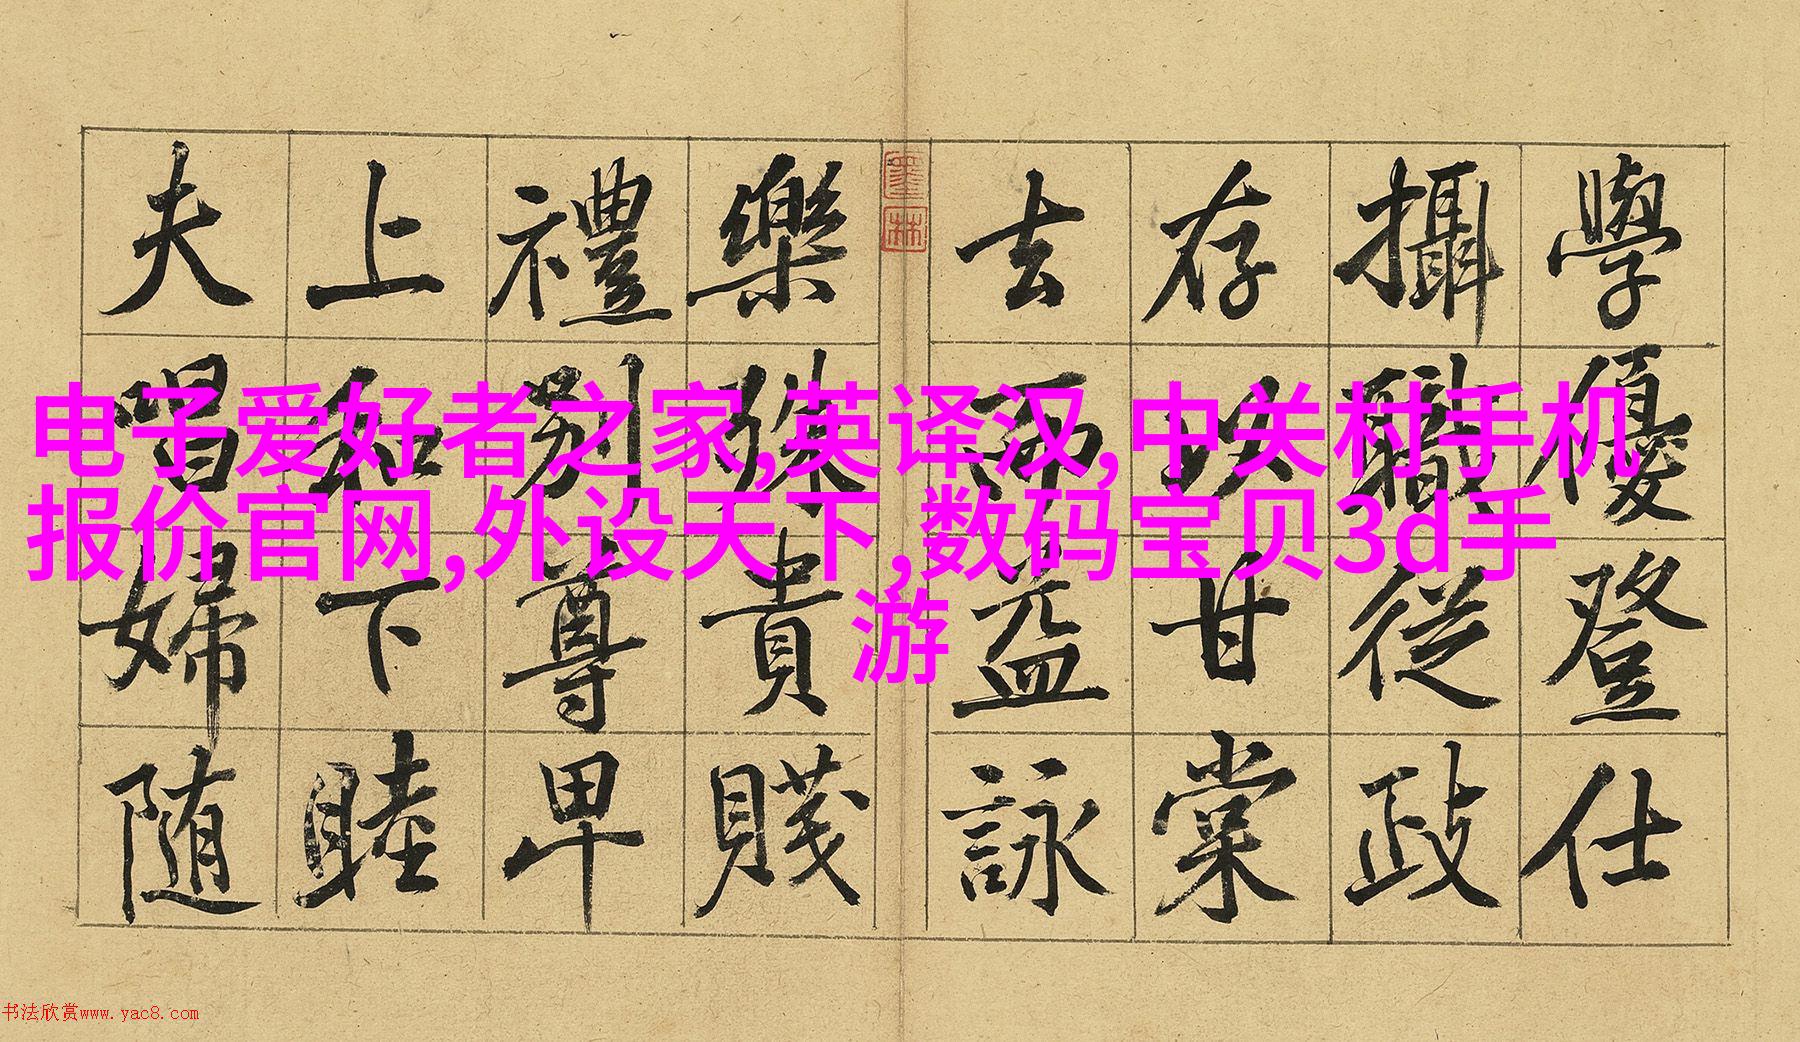 學優登仕
攝職從政
存以甘棠
去而益詠
樂殊貴賤
禮別尊卑
上和下睦
夫唱婦随
墨林
电子爱好者之家,英译汉,中关村手机
报价官网,外设天下,数码宝贝3d手
游
书法欣赏www.yac8.com